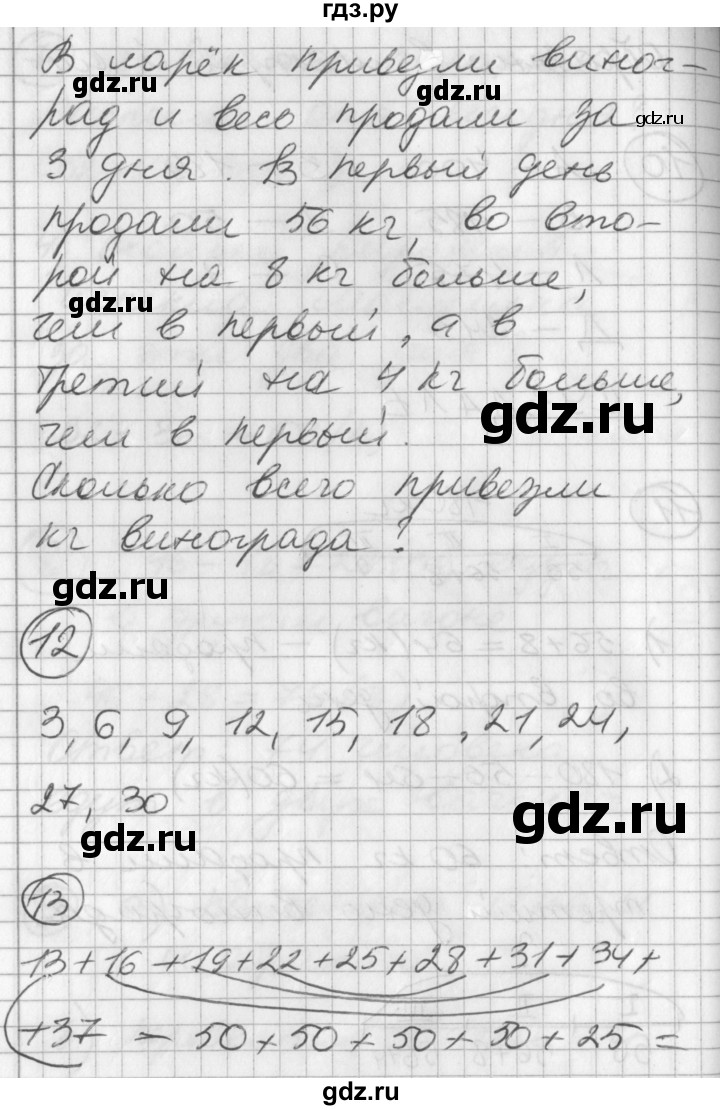 гдз.ру
В ларёк привезли виног-
gdz.ru
gdz.ru
рад и весь продали за
gdz.ru
3 дня. В первый день
gdz.ru
продали 56 кг, во вто-
рой на 8 кг больше,
gdz.ru
gdz.ru
чем в первый, а в
третий на 4 кг больше,
gdz.ru
чем в первый.
Сколько всего привезли
кг винограда?
gdz.ru
12
3, 6, 9, 12, 15, 18, 21, 24,
27, 30
gdz.ru
gdz.ru
13
13+16+19+22+25+28+31+34+
+37 = 50+50+50+50+25=
gdz.ru
gdz.ru